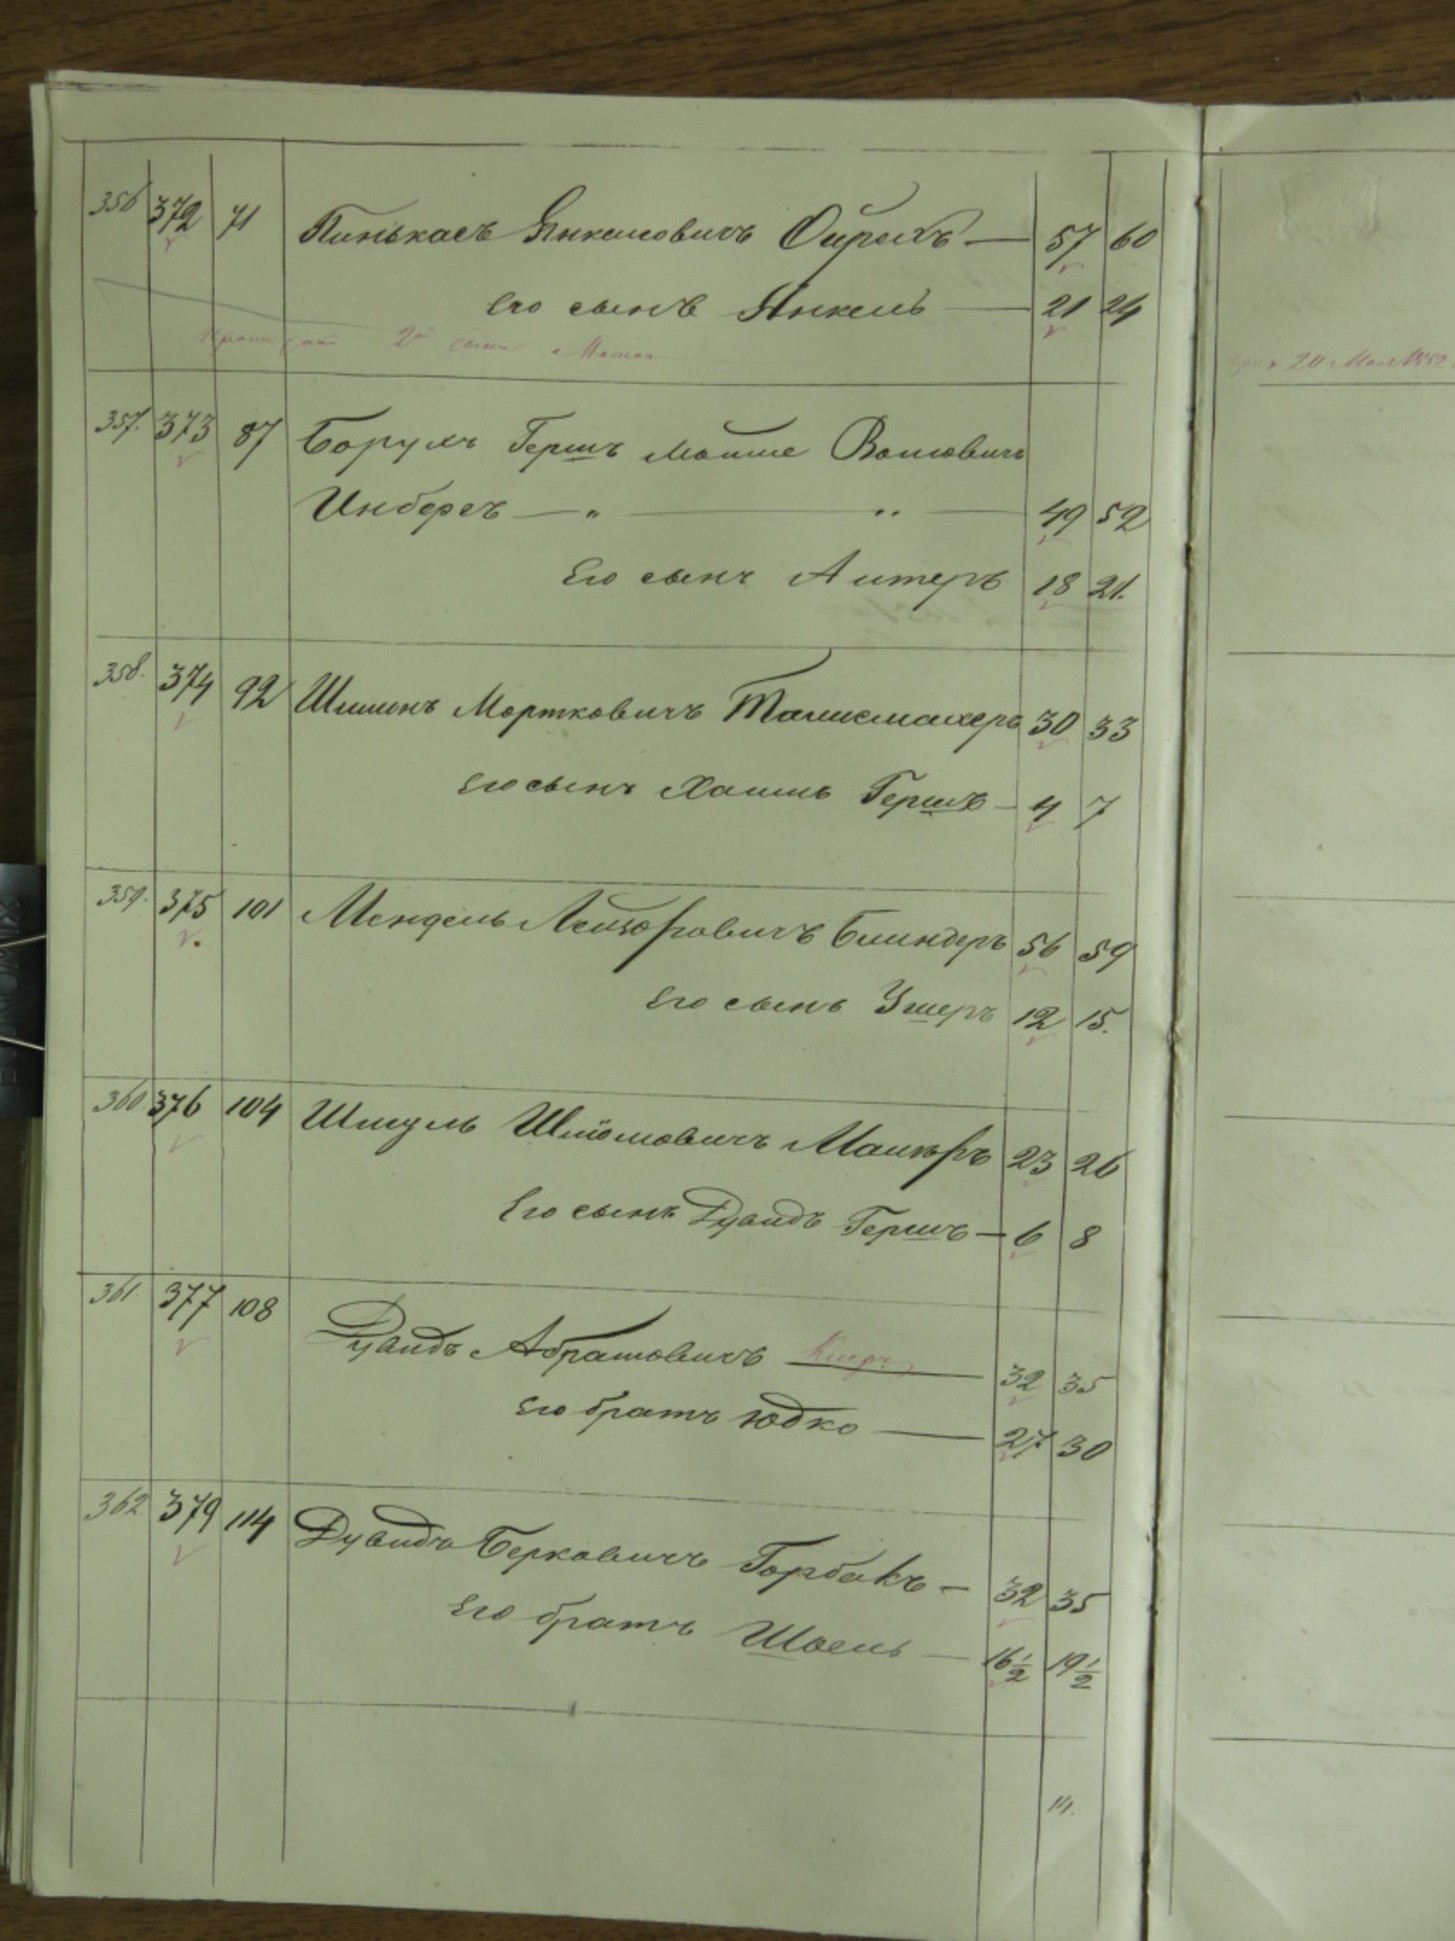 356 372 71 Пинькасъ Янкелювичъ Ойрихъ — 57 60
Его сынъ Янкель — 21 24
2й сынъ Мошко
20 Мая 1859
357. 373 87 Борухъ Гершъ Мошке Волювичъ
Инберсъ — " — " — 49 52
Его сынъ Алтеръ 18 21.
358. 374 92 Шимонъ Мортковичъ Талисмахеръ 30 33
Его сынъ Хаимъ Гершъ — 4 7
359. 375 101 Мендель Лейзоровичъ Блиндеръ 56 59
Его сынъ Ушеръ 12 15.
360 376 104 Шмуль Шлiомовичъ Маикъръ 23 26
Его сынъ Дувидъ Гершъ — 6 8
361 377 108 Дувидъ Абрамовичъ — 32 35
Его братъ Юдко — 27 30
362 379 114 Дувидъ Берковичъ Горбакъ — 32 35
Его братъ Шоель — 16 1/2 19 1/2